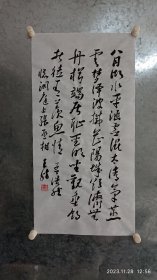 八月湖水平涵虚混太清气蒸
云梦泽波撼岳阳城欲济无
舟楫端居耻圣明坐观垂钓
者徒有羡鱼情 孟浩然
临洞庭上张丞相
2023.11.28 12:56